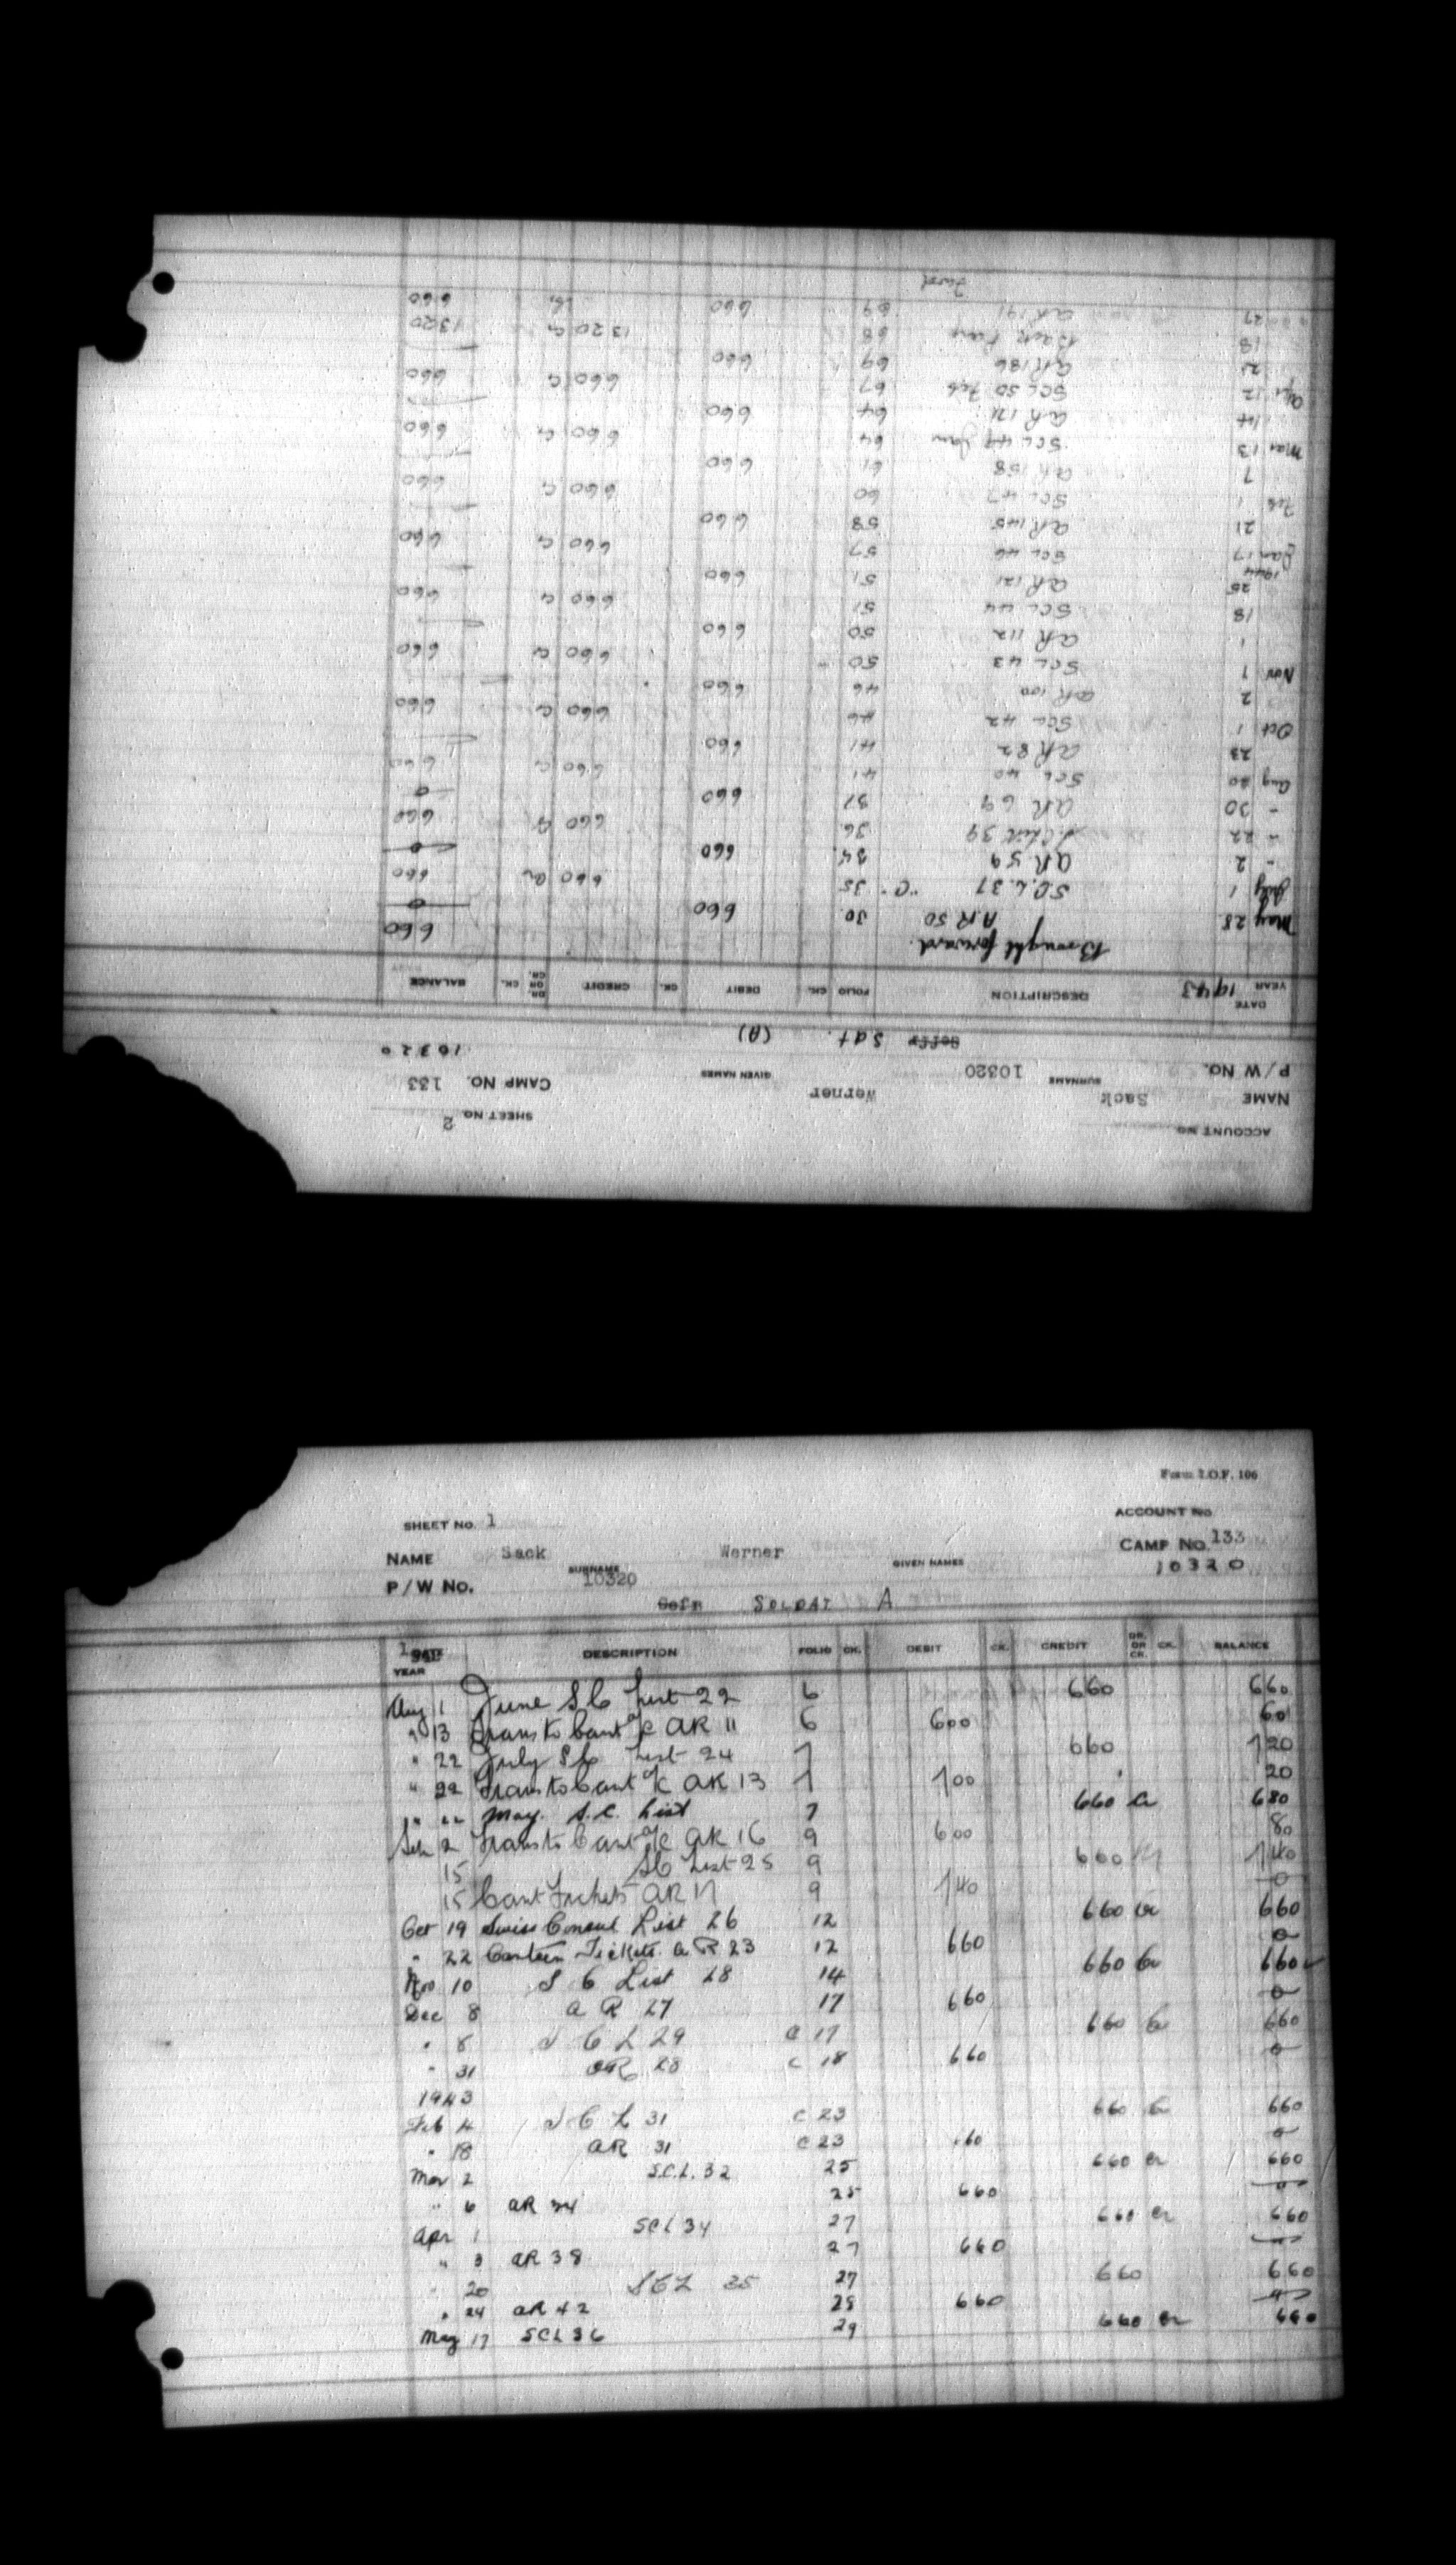 SHEET NO. 2
ACCOUNT NO.
NAME Sack Werner CAMP NO. 133
SURNAME GIVEN NAMES
P/W NO. 10320 10320
Gefr Sdt. (A)
DATE YEAR 1943 DESCRIPTION FOLIO CK. DEBIT CK. CREDIT DR. OR CR. CK. BALANCE
Brought forward 660
May 28 A.R 50 30. 660 0
July 1 S.C.L. 37 "C" 35 660 Cr 660
" 2 AR 59 34. 660 0
" 22 39 36 660 Cr 660
" 30 AR 69 37 660 0
Aug 20 SCL 40 41 660 Cr 660
23 AR 82 41 660
Oct 1 SCL 42 46 660 Cr 660
2 AR 100 46 660
Nov 1 SCL 43 50 660 Cr 660
1 AR 112 50 660
18 SCL 44 51 660 Cr 660
25 AR 121 51 660
1944
Jan 17 SCL 46 57 660 Cr 660
21 AR 145 58 660
Feb 1 SCL 47 60 660 Cr 660
7 AR 158 61 660
Mar 13 SCL 49 Jan 64 660 Cr 660
14 AR 171 64 660
Apr 12 SCL 50 Feb 67 660 Cr 660
21 AR 186 69 660
18 68 1320 Cr 1320
27 AR 191 69 660 Cr 660
Form I.O.F. 106
SHEET NO. 1 ACCOUNT NO.
NAME Sack Werner CAMP NO. 133
SURNAME GIVEN NAMES
P/W NO. 10320 10320
Gefr SOLDAT A
DATE YEAR DESCRIPTION FOLIO CK. DEBIT CK. CREDIT DR. OR CR. CK. BALANCE
Aug 1 June SC List 22 6 660 660
" 13 Trans to Cant a/c AR 11 6 600 60
" 22 July SC List 24 7 660 720
" 22 Trans to Cant a/c AR 13 7 700 20
" 22 May. S.C. List 7 660 Cr 680
Sep 2 Trans to Cant a/c AR 16 9 600 80
15 SC List 25 9 660 Cr 740
15 Cant Tickets AR 17 9 740 0
Oct 19 Swiss Consul List 26 12 660 Cr 660
" 22 Canteen Tickets. AR 23 12 660 0
Nov 10 S C List 28 14 660 Cr 660
Dec 8 A R 27 17 660 0
" 8 S C L 29 C 17 660 Cr 660
" 31 AR 28 C 18 660 0
1943
Feb 4 S C L 31 C 23 660 Cr 660
" 18 AR 31 C 23 660 0
Mar 2 S.C.L. 32 25 660 Cr 660
" 6 AR 34 25 660 0
Apr 1 SCL 34 27 660 Cr 660
" 3 AR 38 27 660
" 20 SCL 35 27 660 660
" 24 AR 42 28 660 0
May 17 SCL 36 29 660 Cr 660